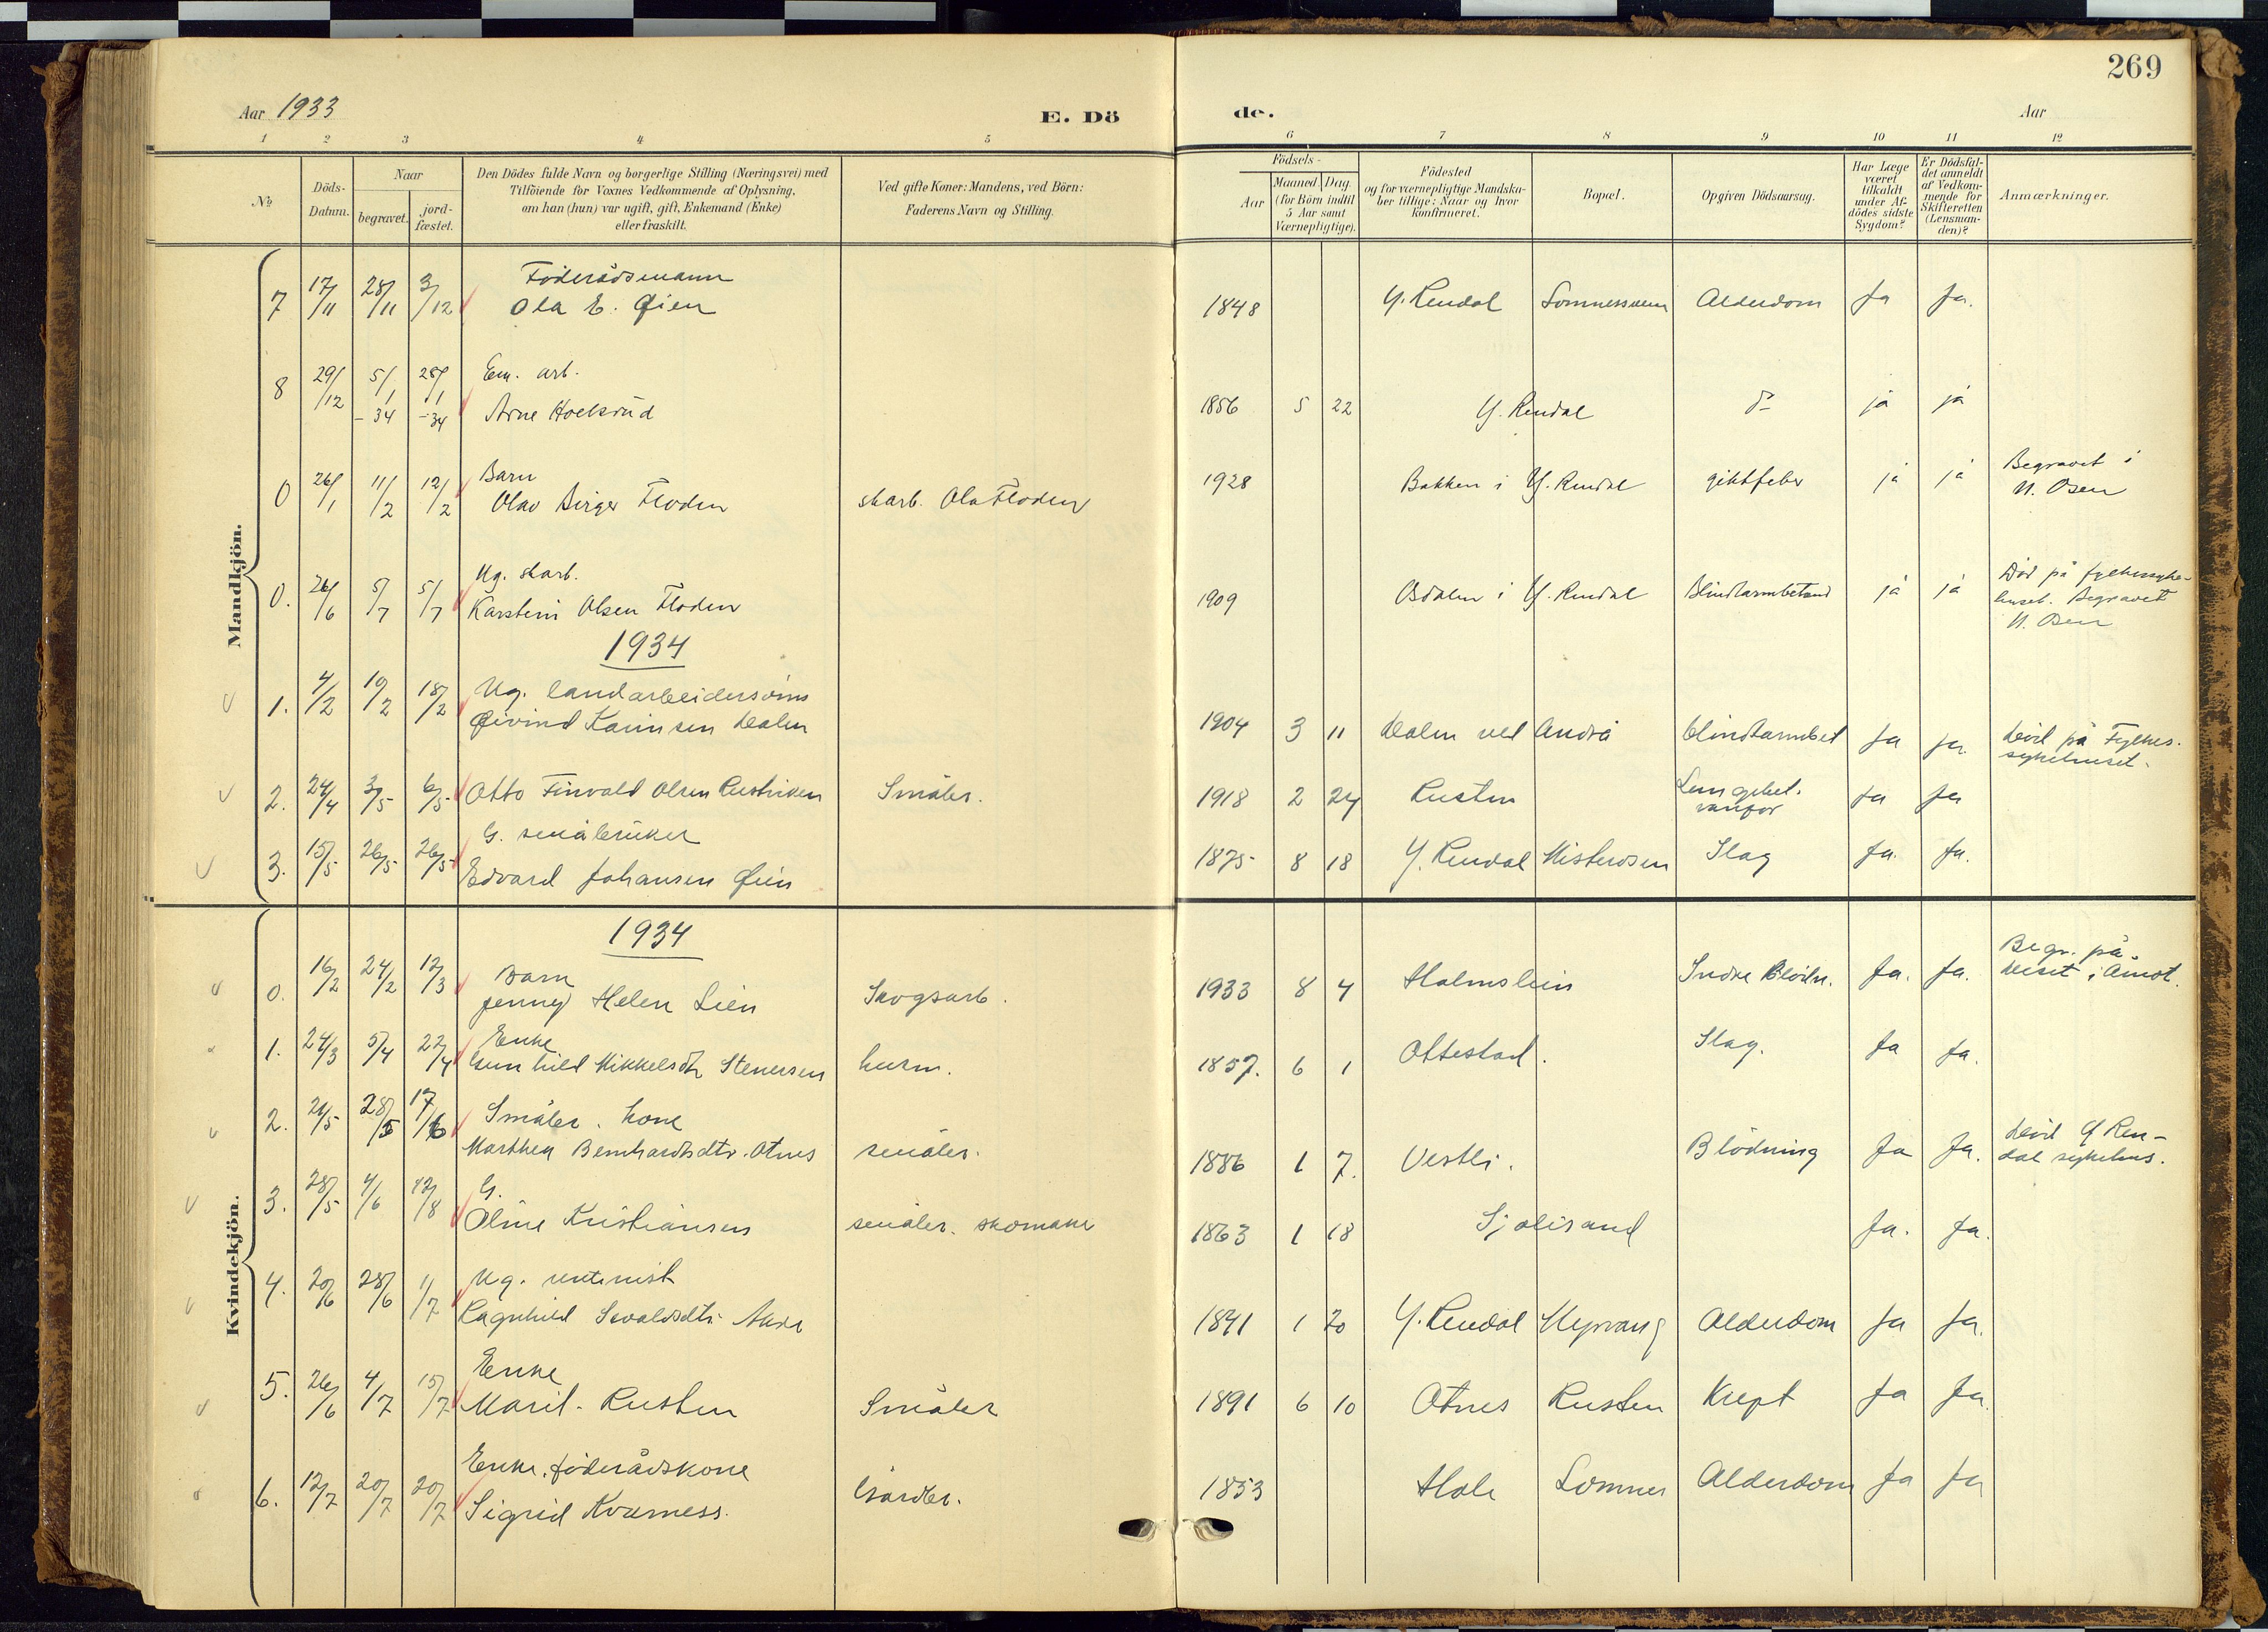 269
Aar 1933
E. Dö
de.
Aar
1 2 3 4 5 6 7 8 9 10 11 12
No
Döds-
Datum.
Naar
begravet.
jord-
fæstet.
Den Dödes fulde Navn og borgerlige Stilling (Næringsvei) med
Tilföiende for Voxnes Vedkommende af Oplysning,
om han (hun) var ugift, gift, Enkemand (Enke)
eller fraskilt.
Ved gifte Koner: Mandens, ved Börn:
Faderens Navn og Stilling.
Födsels-
Aar
Maaned. Dag.
(for Börn indtil
5 Aar samt
Værnepligtige).
Födested
og for værnepligtige Mandska-
ber tillige: Naar og hvor
konfirmeret.
Bopæl.
Opgiven Dödsaarsag.
Har Læge
været
tilkaldt
under Af-
dödes sidste
Sygdom?
Er Dödsfal-
det anmeldt
af Vedkom-
mende for
Skifteretten
(Lensman-
den)?
Anmærkninger.
Mandkjön.
Föderådsmann
7 17/11 28/11 3/12 Ola E. Øien 1848 Y. Rendal Alderdom Ja Ja.
Em. arb.
8 29/12 5/1 -34 28/1 -34 Arne Hoelsrud 1856 5 22 Y. Rendal do ja ja
Barn
0 26/1 11/2 12/2 Olav Birger Floden skarb. Ola Floden 1928 Bakken i Y. Rendal giktfeber ja ja Begravet i
N. Osen
Ug. skarb.
0. 26/6 5/7 5/7 Karsten Olsen Floden 1909 Osdalen i Y. Rendal Blindtarmbetend ja ja Död på fylkessyke-
huset. Begravet
N. Osen
1934
Ug. landarbeidersönn
1. 4/2 10/2 18/2 Øivind 1904 3 11 ved Andrå blindtarmbet Ja ja. död på Fylkes-
sykehuset.
2. 24/4 3/5 6/5 Otto Finvald Olsen Småbr. 1918 2 24 Rusten Lungebet. Ja Ja
G. småbruker
3. 15/5 26/5 26/5 Edvard Johansen Øien 1875 8 18 Y. Rendal Misterosen Slag Ja. Ja.
Kvindekjön.
1934
Barn
0. 16/2 24/2 12/3 Jenny Helen Lien Skogsarb. 1933 8 4 Holmslien Indre Blödn. Ja. Ja. Begr. på
Deset i Åmot.
Enke
1. 24/3 5/4 22/4 Gunhild Mikkelsdtr Stenersen husm. 1857. 6 1 Ottestad. Slag. Ja Ja.
Småbr. kone
2. 21/5 28/5 17/6 Marthea Bernhardtsdtr. Otnes småbr. 1886 1 7. Vestli. Blödning Ja Ja. död Y Ren-
dal sykehus.
G.
3. 28/5 4/6 12/8 Oline Kristiansen småbr. skomaker 1863 1 18 Sjölisand Ja. Ja.
Ug.
4. 20/6 28/6 1/7 Ragnhild Sevaldsdtr. 1841 1 20 Y. Rendal Alderdom Ja Ja.
Enke
5. 26/6 4/7 15/7 Marit Rusten Småbr 1891 6 10 Otnes Rusten Kreft Ja Ja.
Enke, föderådskone
6. 12/7 20/7 20/7 Sigrid Kværness. Gårdbr. 1853 Hole Lomnes Alderdom Ja Ja